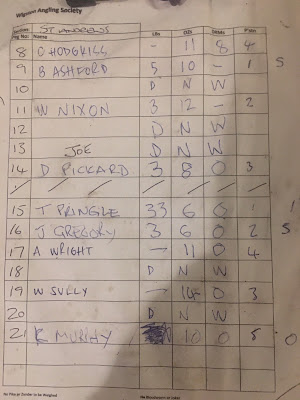 Wigston Angling Society
ST ANDREWS
Peg No: Name Lbs Ozs Drms Pts/n
8 C HODGKILL - 11 8 4
9 B ASHFORD 5 10 - 1 S
10 D N W
11 W NIXON 3 12 - 2
12 D N W
13 JOE D N W
14 D PICKARD 3 8 0 3
/ / / / / /
15 T PRINGLE 33 6 0 1 1
16 J GREGORY 3 6 0 2 S
17 A WRIGHT - 11 0 4
18 D N W
19 W SULLY - 14 0 3
20 D N W
21 MURPHY 10 0 5 0
No Pike or Zander to be Weighed